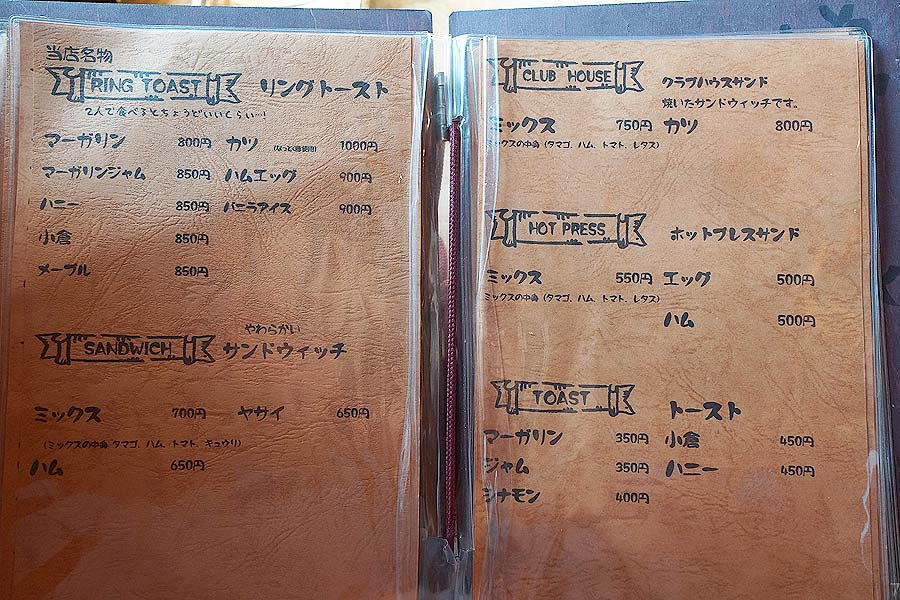 当店名物
RING TOAST リングトースト
2人で食べるとちょうどいいくらい…!
マーガリン 800円 カツ 1000円
マーガリンジャム 850円 ハムエッグ 900円
ハニー 850円 バニラアイス 900円
小倉 850円
メープル 850円
やわらかい
SANDWICH サンドウィッチ
ミックス 700円 ヤサイ 650円
(ミックスの中身 タマゴ、ハム、トマト、キュウリ)
ハム 650円
CLUB HOUSE クラブハウスサンド
焼いたサンドウィッチです。
ミックス 750円 カツ 800円
ミックスの中身 (タマゴ、ハム、トマト、レタス)
HOT PRESS ホットプレスサンド
ミックス 550円 エッグ 500円
ミックスの中身 (タマゴ、ハム、トマト、レタス)
ハム 500円
TOAST トースト
マーガリン 350円 小倉 450円
ジャム 350円 ハニー 450円
シナモン 400円